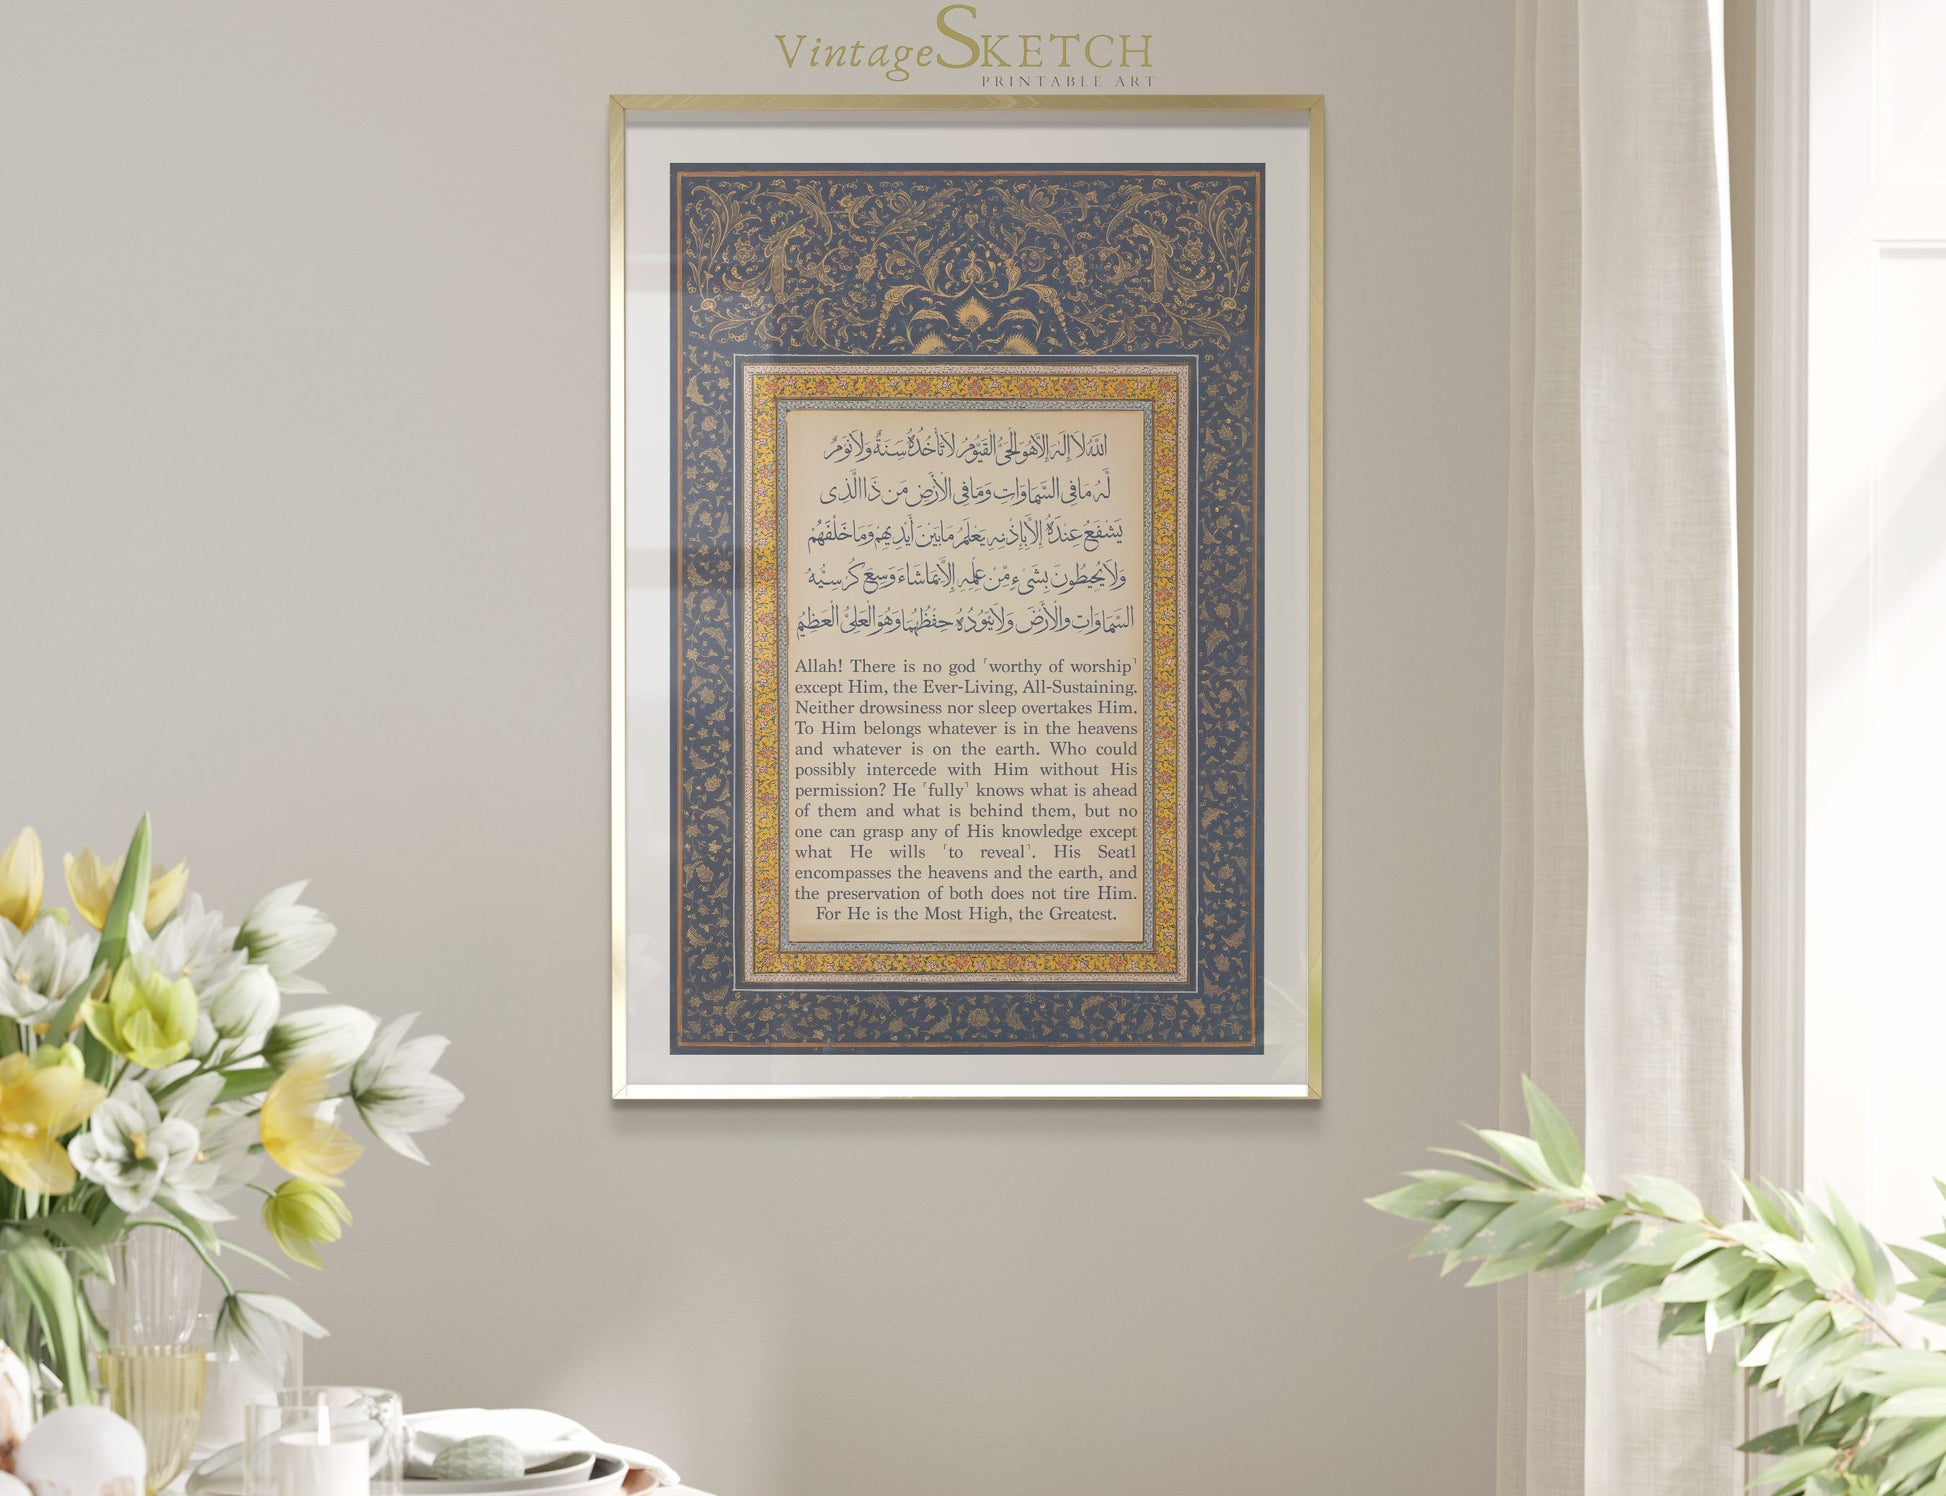 VintageSKETCH
PRINTABLE ART
اللَّهُ لَا إِلَٰهَ إِلَّا هُوَ الْحَيُّ الْقَيُّومُ لَا تَأْخُذُهُ سِنَةٌ وَلَا نَوْمٌ
لَّهُ مَا فِي السَّمَاوَاتِ وَمَا فِي الْأَرْضِ مَن ذَا الَّذِي
يَشْفَعُ عِندَهُ إِلَّا بِإِذْنِهِ يَعْلَمُ مَا بَيْنَ أَيْدِيهِمْ وَمَا خَلْفَهُمْ
وَلَا يُحِيطُونَ بِشَيْءٍ مِّنْ عِلْمِهِ إِلَّا بِمَا شَاءَ وَسِعَ كُرْسِيُّهُ
السَّمَاوَاتِ وَالْأَرْضَ وَلَا يَئُودُهُ حِفْظُهُمَا وَهُوَ الْعَلِيُّ الْعَظِيمُ
Allah! There is no god ˹worthy of worship˺
except Him, the Ever-Living, All-Sustaining.
Neither drowsiness nor sleep overtakes Him.
To Him belongs whatever is in the heavens
and whatever is on the earth. Who could
possibly intercede with Him without His
permission? He ˹fully˺ knows what is ahead
of them and what is behind them, but no
one can grasp any of His knowledge except
what He wills ˹to reveal˺. His Seat1
encompasses the heavens and the earth, and
the preservation of both does not tire Him.
For He is the Most High, the Greatest.